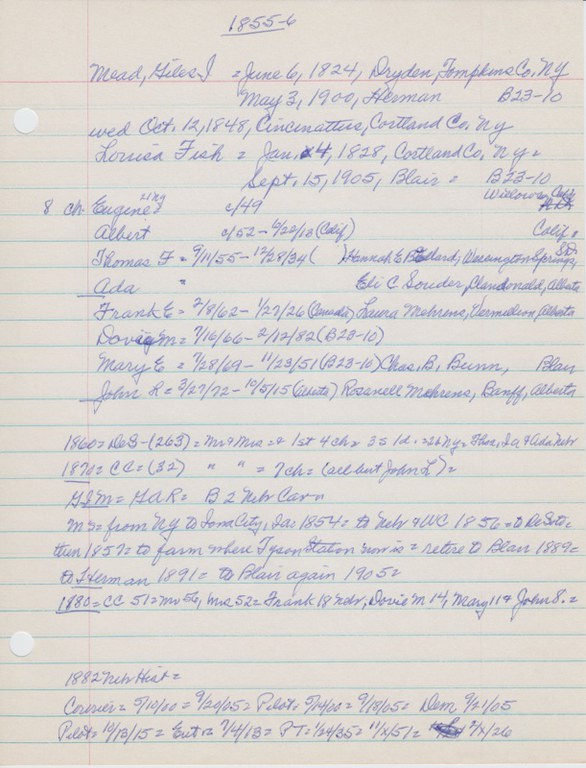 1855-6
Mead, Giles J = June 6, 1824, Dryden, Tompkins Co, Ny
May 3, 1900, Herman B23-10
wed Oct. 12, 1848, Cincinattus, Cortland Co. Ny
Louisa Fish = Jan. 4, 1828, Cortland Co, Ny =
Sept. 15, 1905, Blair = B23-10
8 ch Eugene c/49 Willows, Calif
Albert c/52 - 4/22/13 (Calif) Calif.
Thomas F = 9/11/55 - 12/28/34 ( ) Hannah E Wessington Springs, SD
Ada " Eli C Souder, Clandonald, Alberta
Frank E = 2/8/62 - 1/27/26 (Canada) Laura Mehrens, Vermilion, Alberta
Dovie M = 7/16/66 - 2/12/82 (B23-10)
Mary E = 7/28/69 - 11/23/51 (B23-10) Chas. B. Bunn, Blair
John R = 3/27/72 - 10/5/15 (Alberta) Rosanell Mehrens, Banff, Alberta
1860 = DeS - (263) = Mr & Mrs = & 1st 4 ch = 3 s 1 d. = Ny = Ia & Ada Nebr
1870 = CC = (32) " " = 7 ch = (Albert John L) =
GJM = GAR = B 2 Nebr Cav =
M = from Ny to Iowa City, Ia = 1854 = to Nebr & WC 1856 = to DeSoto =
then 1857 = to farm where Tyson Station now is = retire to Blair 1889 =
to Herman 1891 = to Blair again 1905 =
1880 = CC 51 = Mr 56, Mrs 52 = Frank 18 Nebr, Dovie M 14, Mary 11 & John 8. =
1882 Nebr Hist =
Courier = 5/10/00 = 9/20/05 = Pilot. 5/14/00 = 9/18/05 = Dem 9/21/05
Pilot = 10/13/15 = Ent = 7/4/13 = PT = 1/24/35 = 11/x/51 = 2/x/26